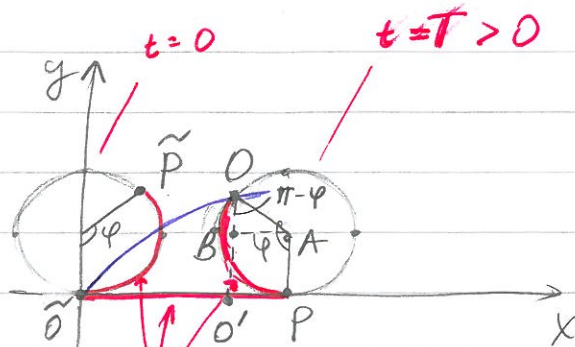 t = 0
t = T > 0
y
P̃
O
π-φ
φ
B
φ
A
Õ
O'
P
x